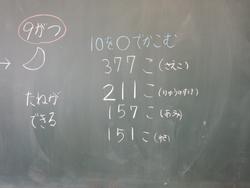 9がつ
たねが
できる
10を○でかこむ
377こ(さえこ)
211こ(りゅうのすけ)
157こ(あみ)
151こ(ゆき)